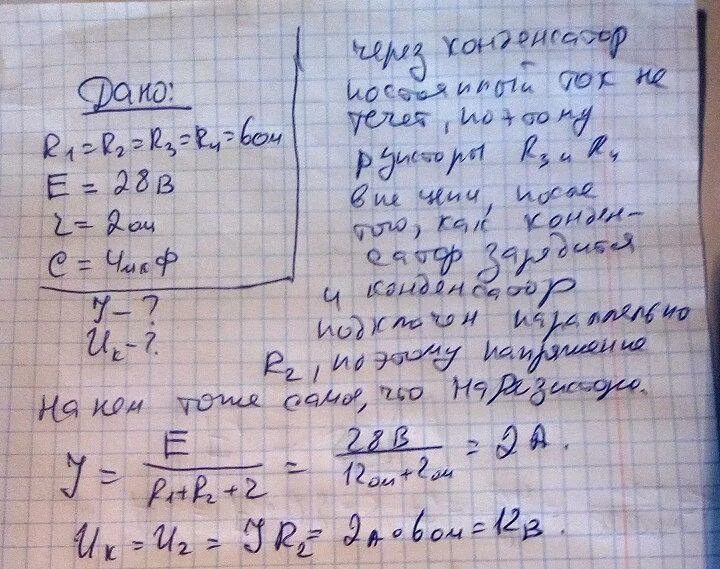 Дано:
R1=R2=R3=R4=6ом
E = 28В
r = 2ом
C = 4мкФ
J - ?
Uк - ?
через конденсатор
постоянный ток не
течет, поэтому
рузисторы R3 и R4
вне цепи, после
того, как конден-
сатор зарядится
и конденсатор
подключен параллельно
R2, поэтому напряжение
на нем тоже самое, что на резисторе.
J = E / (R1+R2+r) = 28В / (12ом+2ом) = 2А.
Uк = U2 = JR2 = 2А·6ом = 12В.